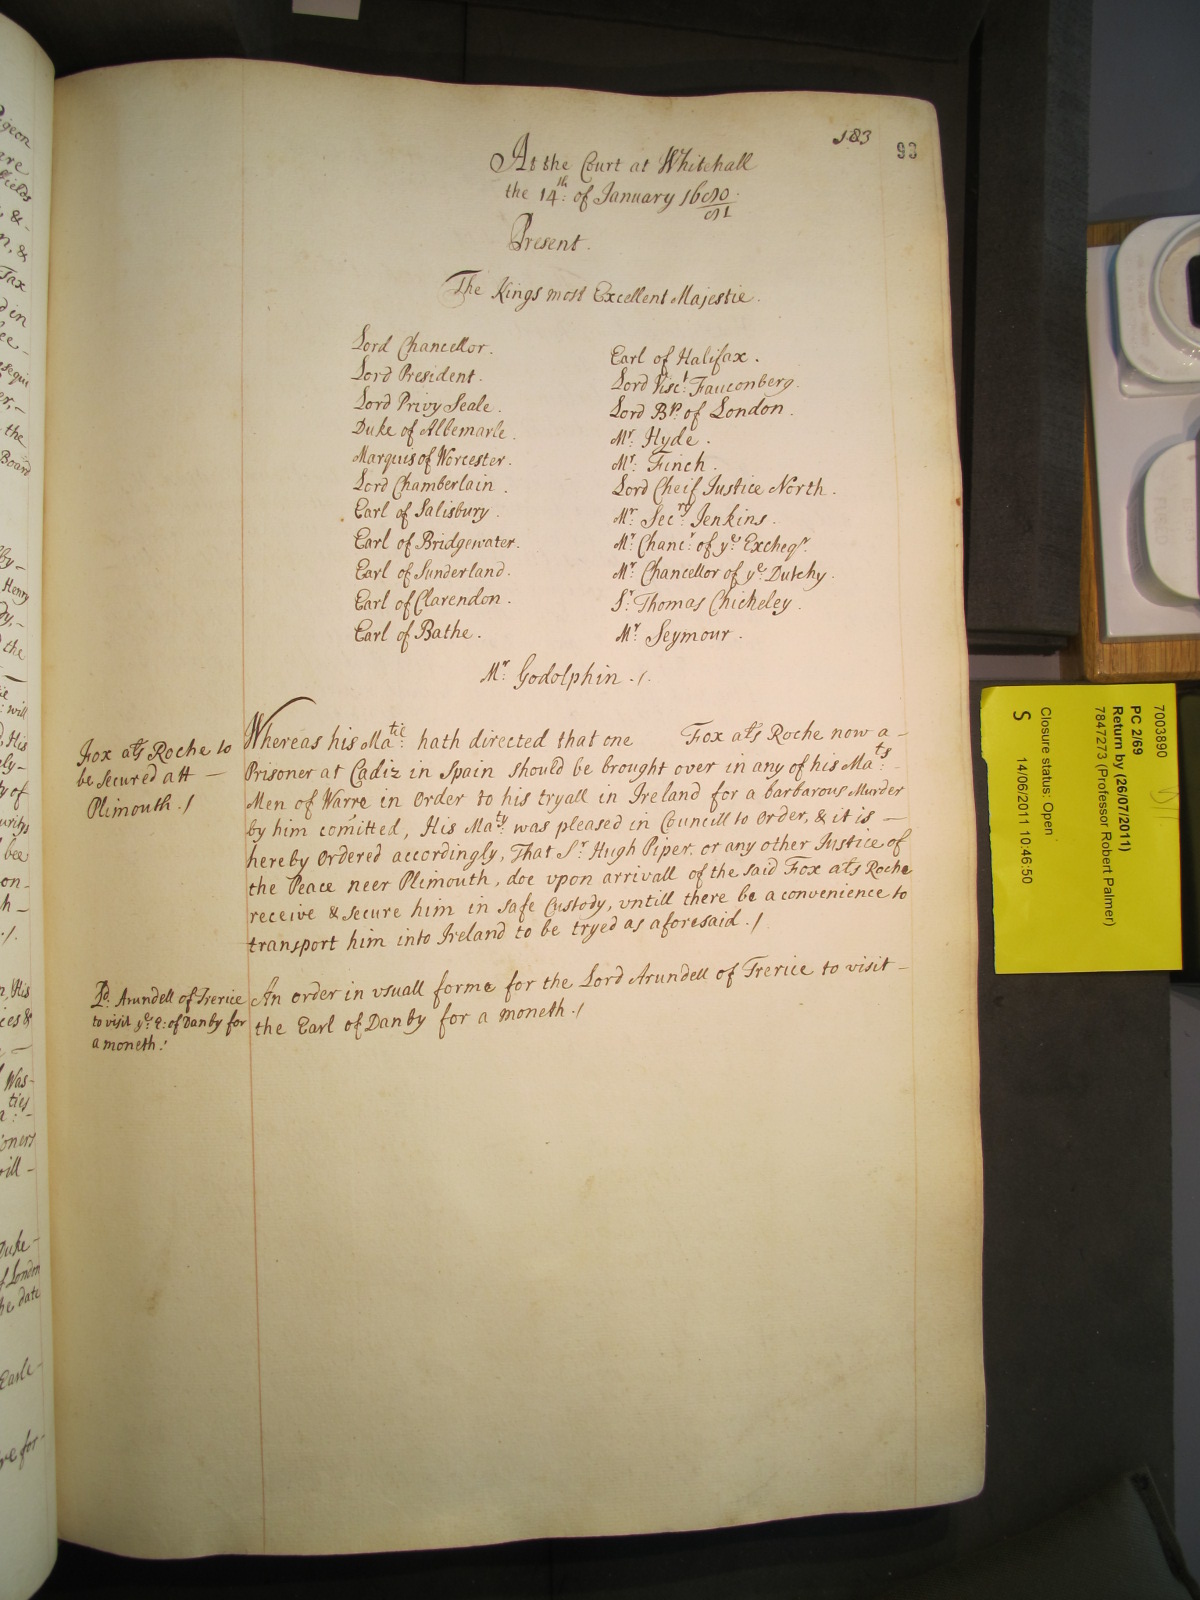 183
93
At the Court at Whitehall
the 14th: of January 1680/81
Present.
The Kings most Excellent Majestie.
Lord Chancellor.
Lord President.
Lord Privy Seale.
Duke of Albemarle.
Marquis of Worcester.
Lord Chamberlain.
Earl of Salisbury.
Earl of Bridgewater.
Earl of Sunderland.
Earl of Clarendon.
Earl of Bathe.
Earl of Halifax.
Lord Visct: Fauconberg.
Lord Bp: of London.
Mr: Hyde.
Mr: Finch.
Lord Cheif Justice North.
Mr: Secry: Jenkins.
Mr: Chancr: of ye: Excheqr:
Mr: Chancellor of ye: Dutchy.
Sr: Thomas Chicheley.
Mr: Seymour.
Mr: Godolphin ./.
Fox als Roche to
be secured att —
Plimouth ./
Whereas his Matie: hath directed that one Fox als Roche now a -
Prisoner at Cadiz in Spain should be brought over in any of his Mats: -
Men of Warre in Order to his tryall in Ireland for a barbarous Murder
by him comitted, His Maty: was pleased in Councill to Order, & it is —
hereby Ordered accordingly, That Sr: Hugh Piper, or any other Justice of
the Peace neer Plimouth, doe vpon arrivall of the said Fox als Roche
receive & secure him in safe Custody, vntill there be a convenience to
transport him into Ireland to be tryed as aforesaid ./
Ld: Arundell of Trerice
to visit ye: E: of Danby for
a moneth :/
An order in vsuall forme for the Lord Arundell of Trerice to visit -
the Earl of Danby for a moneth ./
7003890
PC 2/69
Return by (26/07/2011)
7847273 (Professor Robert Palmer)
Closure status: Open
S 14/06/2011 10:46:50